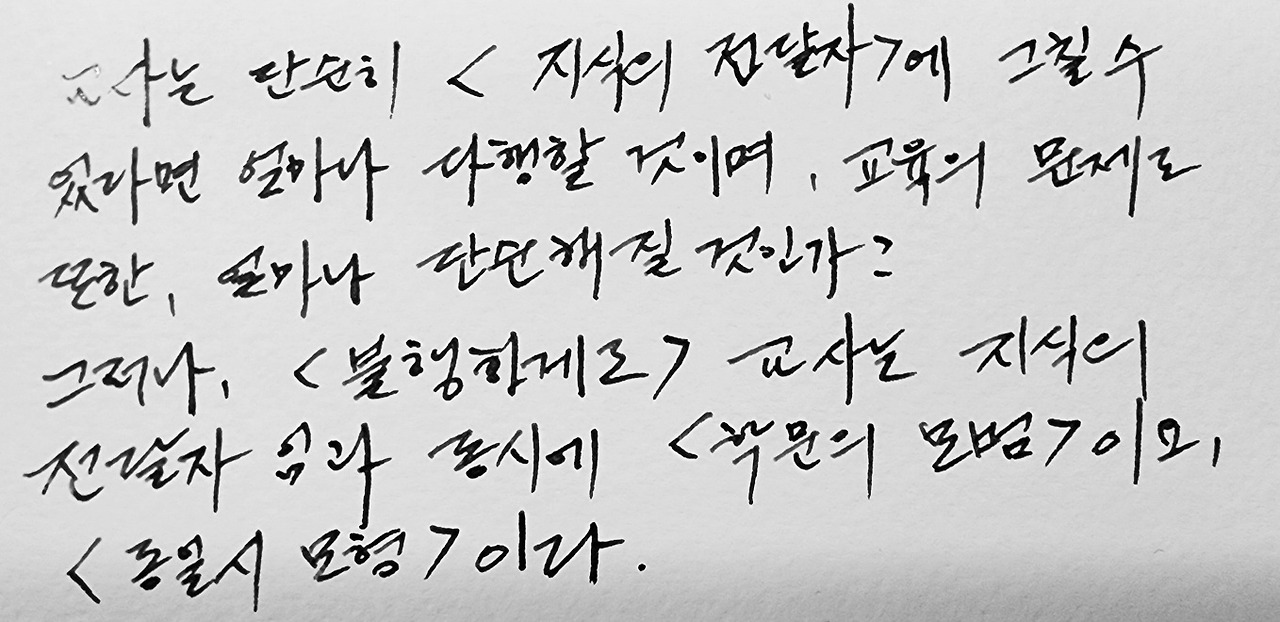 교사는 단순히 < 지식의 전달자>에 그칠 수
있다면 얼마나 다행할 것이며, 교육의 문제도
또한, 얼마나 단순해질 것인가?
그러나, <불행하게도> 교사는 지식의
전달자임과 동시에 <학문의 모범>이오,
<동일시 모형>이다.